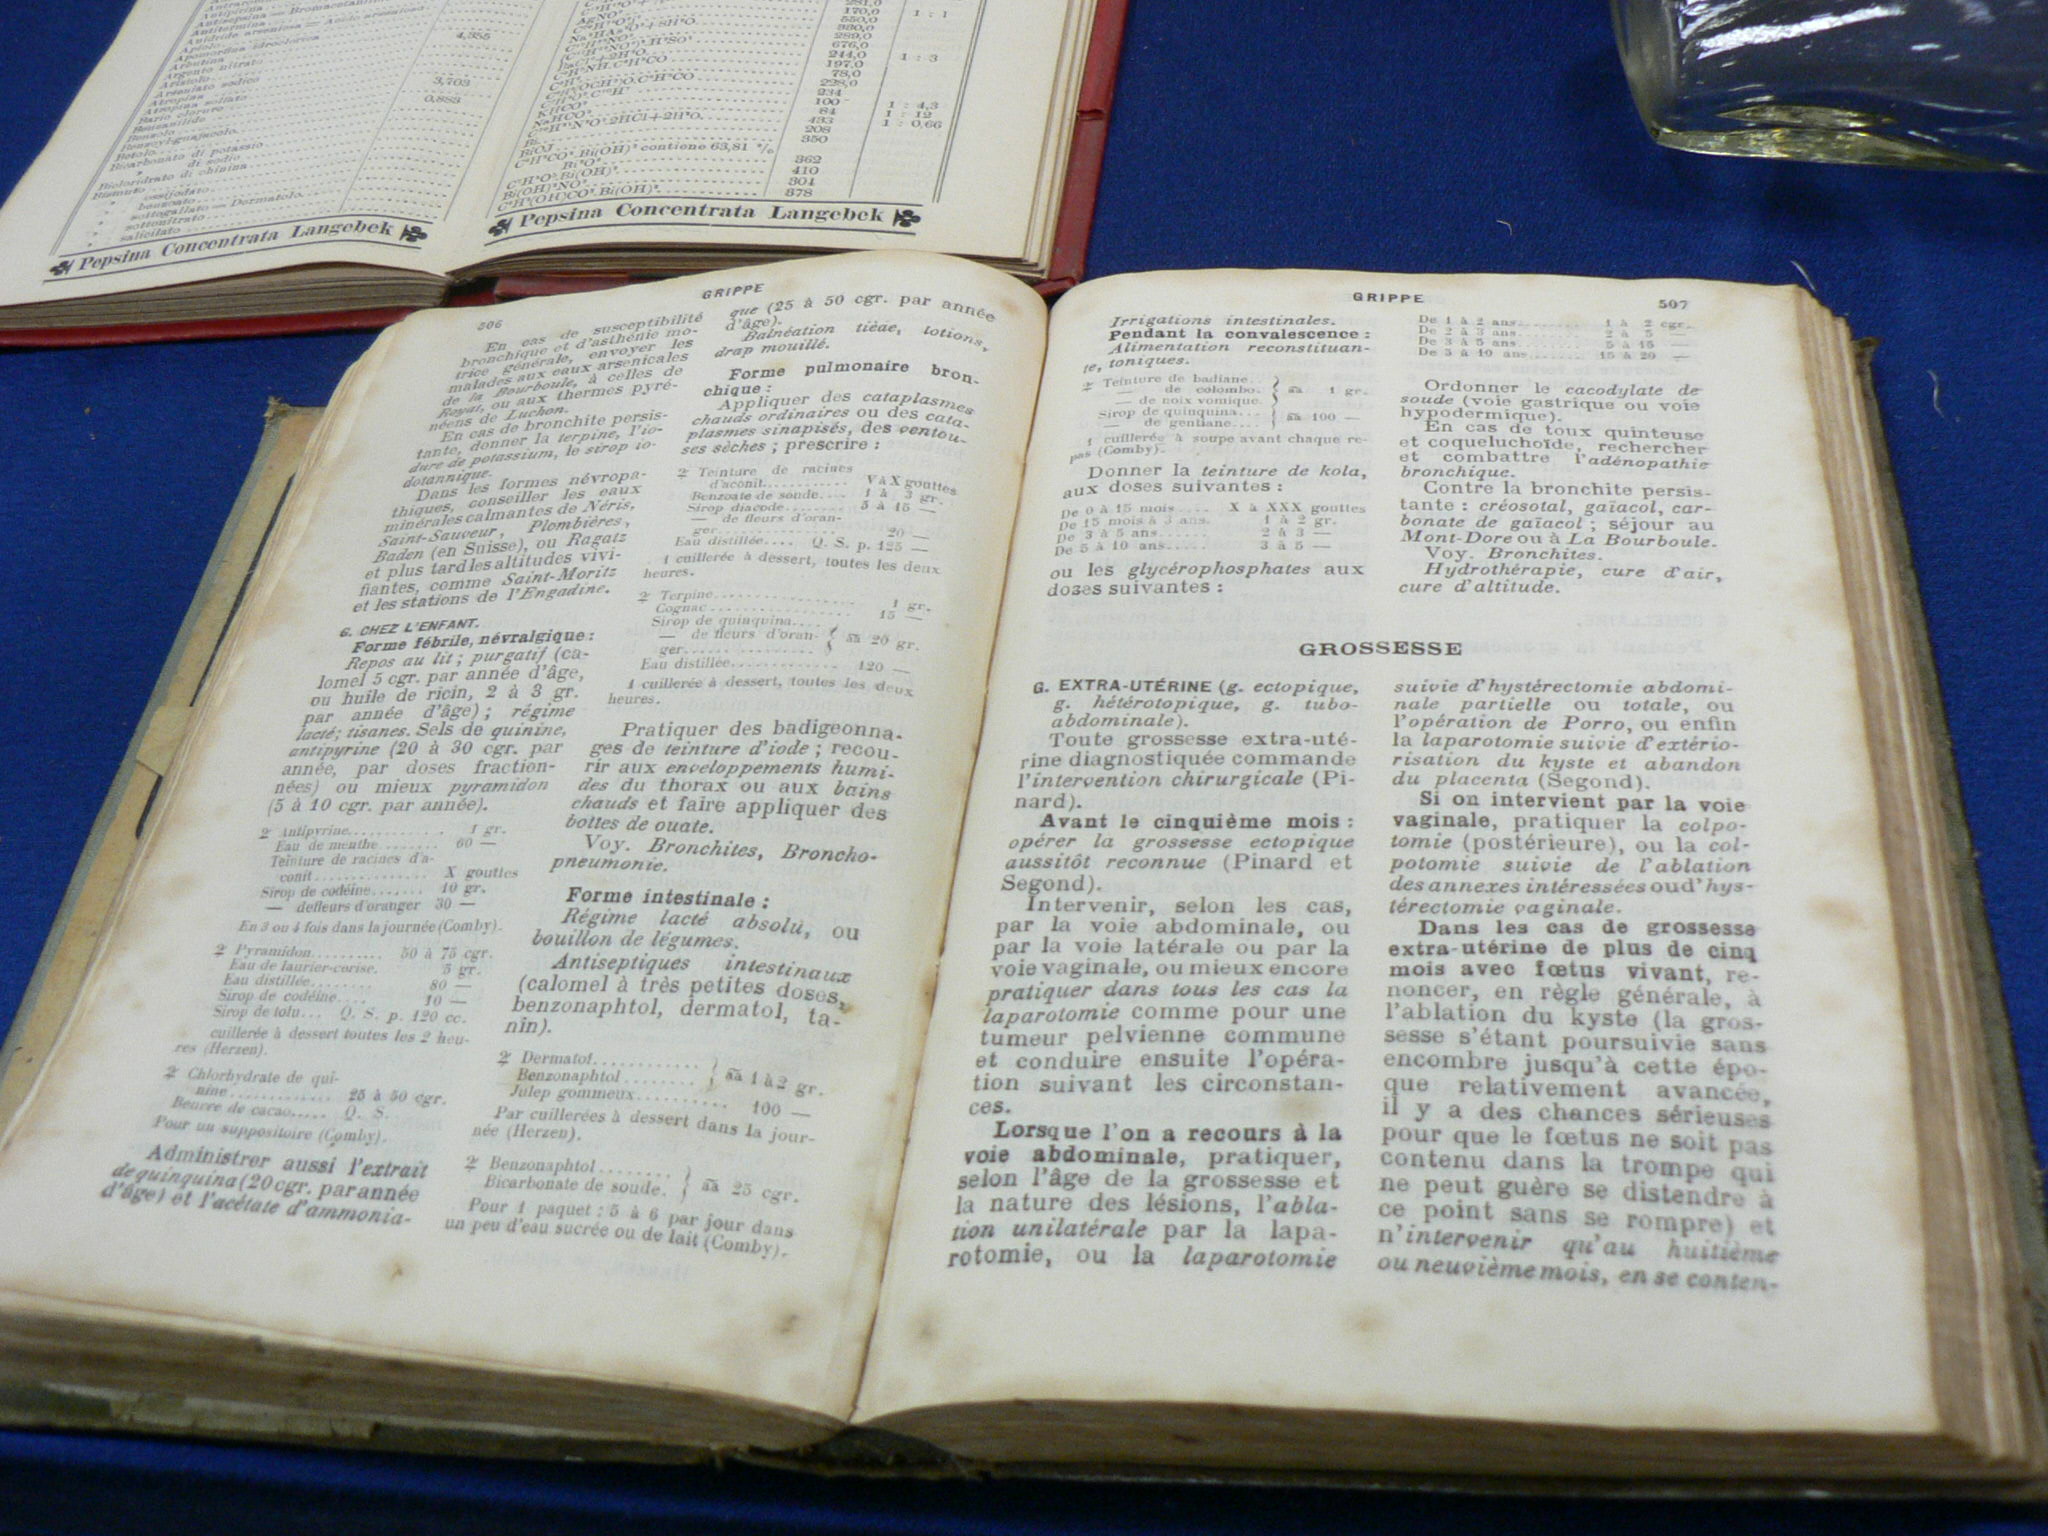 Antisepsina = Bromacetanilide
Anidride arseniosa = Acido arsenioso
Apiolo
Apomorfina idroclorica
Arbutina
Argento nitrato
Aristolo
Arseniato sodico
Atropina
Atropina solfato
Bario cloruro
Benzanilide
Benzolo
Benzoyl-guajacolo
Betolo
Bicarbonato di potassio
» di sodio
Bicloridrato di chinina
Bismuto
» ossijodato
» benzoato
» sottogallato = Dermatolo
» sottonitrato
» salicilato
4,355
3,703
0,883
Pepsina Concentrata Langebek
170,0 1 : 1
550,0
330,0
289,0
676,0
244,0 1 : 3
197,0
78,0
228,0
234
KHCO³ 100 1 : 4,3
NaHCO³ 84 1 : 12
433 1 : 0,66
Bi 208
BiOJ 350
contiene 63,81 %
362
410
Bi(OH)²NO³ 304
378
Pepsina Concentrata Langebek
506
GRIPPE
En cas de susceptibilité
bronchique et d'asthénie mo-
trice générale, envoyer les
malades aux eaux arsenicales
de la Bourboule, à celles de
Royat, ou aux thermes pyré-
néens de Luchon.
En cas de bronchite persis-
tante, donner la terpine, l'io-
dure de potassium, le sirop io-
dotannique.
Dans les formes névropa-
thiques, conseiller les eaux
minérales calmantes de Néris,
Saint-Sauveur, Plombières,
Baden (en Suisse), ou Ragatz
et plus tard les altitudes vivi-
fiantes, comme Saint-Moritz
et les stations de l'Engadine.
G. CHEZ L'ENFANT.
Forme fébrile, névralgique :
Repos au lit ; purgatif (ca-
lomel 5 cgr. par année d'âge,
ou huile de ricin, 2 à 3 gr.
par année d'âge) ; régime
lacté; tisanes. Sels de quinine,
antipyrine (20 à 30 cgr. par
année, par doses fraction-
nées) ou mieux pyramidon
(5 à 10 cgr. par année).
♃ Antipyrine............ 1 gr.
Eau de menthe........ 60 —
Teinture de racines d'a-
conit............... X gouttes
Sirop de codéine....... 10 gr.
— de fleurs d'oranger 30 —
En 3 ou 4 fois dans la journée (Comby).
♃ Pyramidon.......... 50 à 75 cgr.
Eau de laurier-cerise. 5 gr.
Eau distillée........ 80 —
Sirop de codéine.... 10 —
Sirop de tolu... Q. S. p. 120 cc.
cuillerée à dessert toutes les 2 heu-
res (Herzen).
♃ Chlorhydrate de qui-
nine............. 25 à 50 cgr.
Beurre de cacao..... Q. S.
Pour un suppositoire (Comby).
Administrer aussi l'extrait
de quinquina (20 cgr. par année
d'âge) et l'acétate d'ammonia-
que (25 à 50 cgr. par année
d'âge).
Balnéation tiède, lotions,
drap mouillé.
Forme pulmonaire bron-
chique :
Appliquer des cataplasmes
chauds ordinaires ou des cata-
plasmes sinapisés, des ventou-
ses sèches ; prescrire :
♃ Teinture de racines
d'aconit........... V à X gouttes
Benzoate de soude.... 1 à 3 gr.
Sirop diacode........ 5 à 15 —
— de fleurs d'oran-
ger............... 20 —
Eau distillée.... Q. S. p. 125 —
1 cuillerée à dessert, toutes les deux
heures.
♃ Terpine................. 1 gr.
Cognac................ 15 —
Sirop de quinquina....
— de fleurs d'oran- } āā 20 gr.
ger.................
Eau distillée............. 120 —
1 cuillerée à dessert, toutes les deux
heures.
Pratiquer des badigeonna-
ges de teinture d'iode ; recou-
rir aux enveloppements humi-
des du thorax ou aux bains
chauds et faire appliquer des
bottes de ouate.
Voy. Bronchites, Broncho-
pneumonie.
Forme intestinale :
Régime lacté absolu, ou
bouillon de légumes.
Antiseptiques intestinaux
(calomel à très petites doses,
benzonaphtol, dermatol, ta-
nin).
♃ Dermatol........... } āā 1 à 2 gr.
Benzonaphtol........
Julep gommeux.......... 100 —
Par cuillerées à dessert dans la jour-
née (Herzen).
♃ Benzonaphtol........ } āā 25 cgr.
Bicarbonate de soude.
Pour 1 paquet : 5 à 6 par jour dans
un peu d'eau sucrée ou de lait (Comby).
GRIPPE
507
Irrigations intestinales.
Pendant la convalescence :
Alimentation reconstituan-
te, toniques.
♃ Teinture de badiane..
— de colombo. } āā 1 gr.
— de noix vomique.
Sirop de quinquina... } āā 100 —
— de gentiane....
1 cuillerée à soupe avant chaque re-
pas (Comby).
Donner la teinture de kola,
aux doses suivantes :
De 0 à 15 mois.... X à XXX gouttes
De 15 mois à 3 ans. 1 à 2 gr.
De 3 à 5 ans...... 2 à 3 —
De 5 à 10 ans...... 3 à 5 —
ou les glycérophosphates aux
doses suivantes :
De 1 à 2 ans........ 1 à 2 cgr.
De 2 à 3 ans........ 2 à 5 —
De 3 à 5 ans........ 5 à 15 —
De 5 à 10 ans....... 15 à 20 —
Ordonner le cacodylate de
soude (voie gastrique ou voie
hypodermique).
En cas de toux quinteuse
et coqueluchoïde, rechercher
et combattre l'adénopathie
bronchique.
Contre la bronchite persis-
tante : créosotal, gaïacol, car-
bonate de gaïacol ; séjour au
Mont-Dore ou à La Bourboule.
Voy. Bronchites.
Hydrothérapie, cure d'air,
cure d'altitude.
GROSSESSE
G. EXTRA-UTÉRINE (g. ectopique,
g. hétérotopique, g. tubo-
abdominale).
Toute grossesse extra-uté-
rine diagnostiquée commande
l'intervention chirurgicale (Pi-
nard).
Avant le cinquième mois :
opérer la grossesse ectopique
aussitôt reconnue (Pinard et
Segond).
Intervenir, selon les cas,
par la voie abdominale, ou
par la voie latérale ou par la
voie vaginale, ou mieux encore
pratiquer dans tous les cas la
laparotomie comme pour une
tumeur pelvienne commune
et conduire ensuite l'opéra-
tion suivant les circonstan-
ces.
Lorsque l'on a recours à la
voie abdominale, pratiquer,
selon l'âge de la grossesse et
la nature des lésions, l'abla-
tion unilatérale par la lapa-
rotomie, ou la laparotomie
suivie d'hystérectomie abdomi-
nale partielle ou totale, ou
l'opération de Porro, ou enfin
la laparotomie suivie d'extério-
risation du kyste et abandon
du placenta (Segond).
Si on intervient par la voie
vaginale, pratiquer la colpo-
tomie (postérieure), ou la col-
potomie suivie de l'ablation
des annexes intéressées ou d'hys-
térectomie vaginale.
Dans les cas de grossesse
extra-utérine de plus de cinq
mois avec fœtus vivant, re-
noncer, en règle générale, à
l'ablation du kyste (la gros-
sesse s'étant poursuivie sans
encombre jusqu'à cette épo-
que relativement avancée,
il y a des chances sérieuses
pour que le fœtus ne soit pas
contenu dans la trompe qui
ne peut guère se distendre à
ce point sans se rompre) et
n'intervenir qu'au huitième
ou neuvième mois, en se conten-